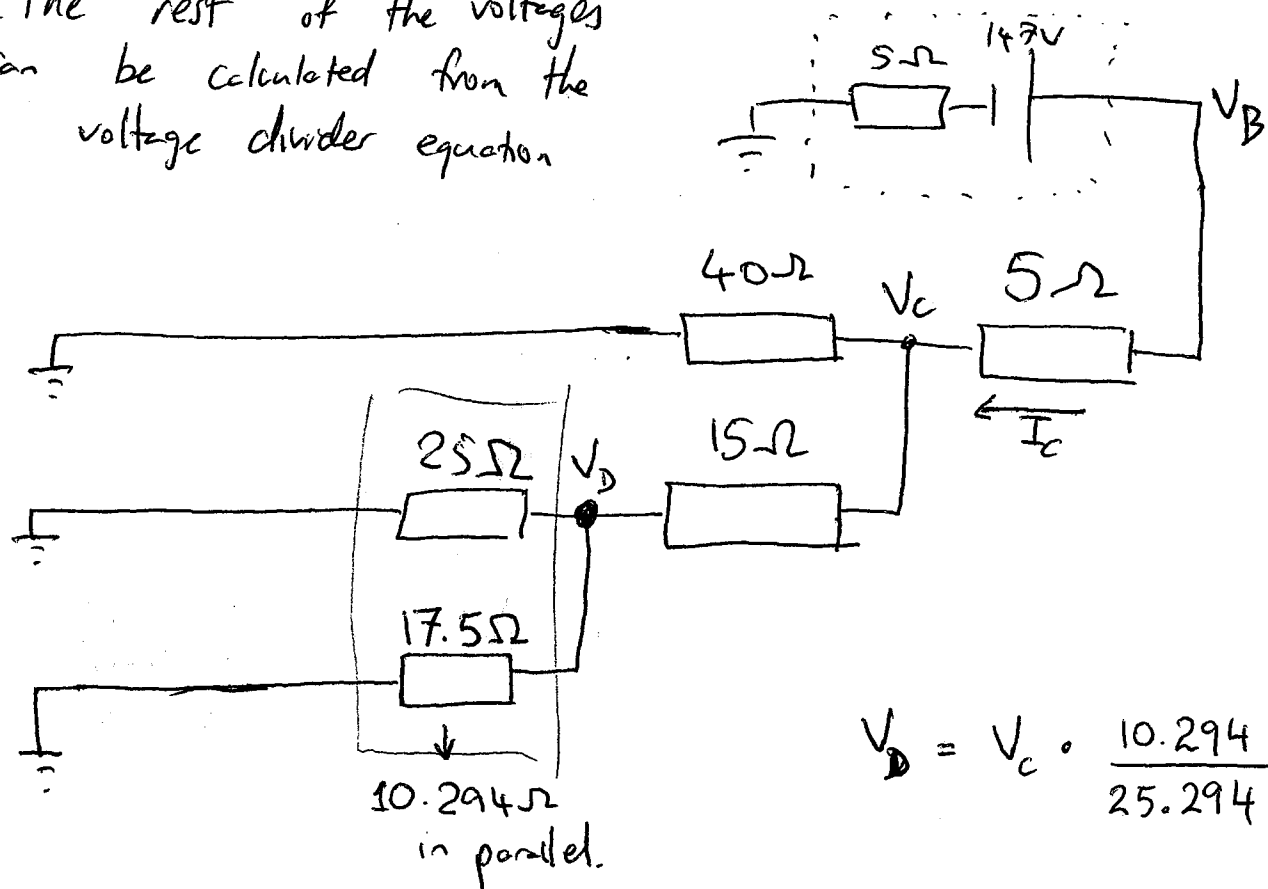 The rest of the voltages
an be calculated from the
voltage divider equation
5Ω
147V
V_B
40Ω
V_C
5Ω
I_C
25Ω
V_D
15Ω
17.5Ω
10.294Ω
in parallel.
V_D = V_C · 10.294
25.294